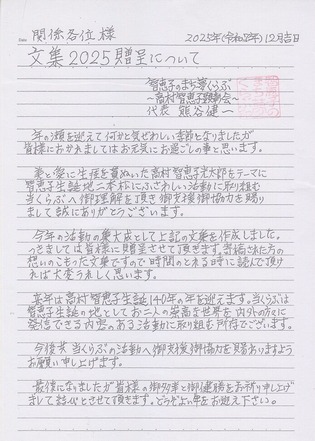 関係各位様
2025年(令和7年)12月吉日
文集2025贈呈について
智恵子のまち夢くらぶ
～高村智恵子顕彰会～
代表 熊谷健一
年の瀬を迎えて何かと気ぜわしい季節となりましたが
皆様におかれましてはお元気にお過ごしの事と思います。
美と愛に生涯を貫いた高村智恵子光太郎をテーマに
智恵子生誕地二本松にふさわしい活動に取り組む
当くらぶへ御理解を頂き御支援御協力を賜り
まして誠にありがとうございます。
今年の活動の集大成として上記の文集を作成しました。
つきましては皆様に贈呈させて頂きます。寄稿された方の
想いのこもった文集ですので時間のとれる時に読んで頂け
れば大変うれしく思います。
来年は高村智恵子生誕140年の年を迎えます。当くらぶは
智恵子生誕の地としてお二人の崇高な世界を内外の方々に
発信できる内容のある活動に取り組む所存でございます。
今後共当くらぶの活動へ御支援御協力を賜りますよう
お願い申し上げます。
最後になりましたが皆様の御多幸と御健勝をお祈り申し上げ
まして結びとさせて頂きます。どうぞよい年をお迎え下さい。